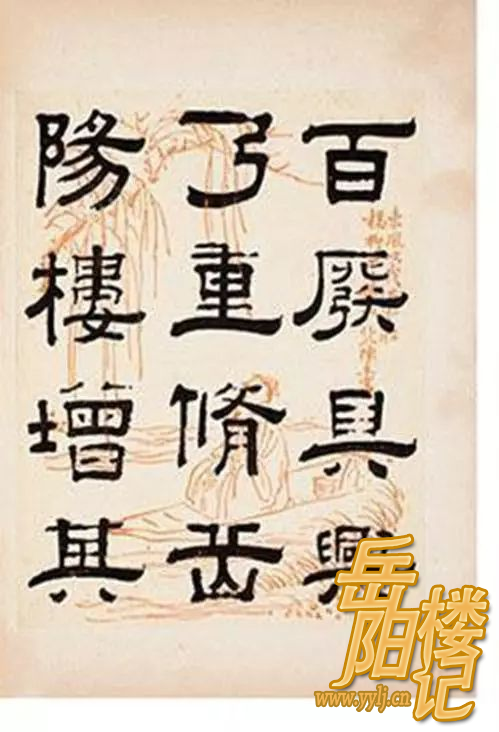 百廢具興
乃重脩岳
陽樓增其
岳阳楼记
www.yylj.cn